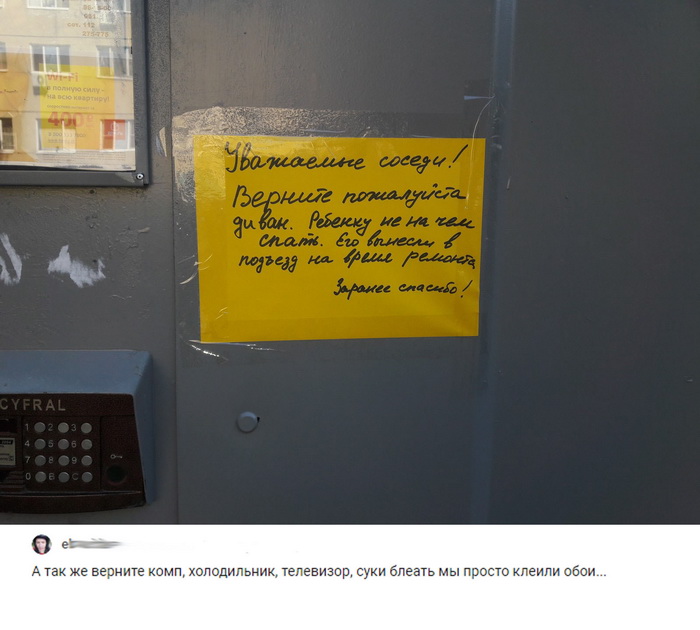 Wi-Fi
в полную силу -
на всю квартиру!
400
Уважаемые соседи!
Верните пожалуйста
диван. Ребенку не на чем
спать. Его вынесли в
подъезд на время ремонта
Заранее спасибо!
CYFRAL
1 2 3
4 5 6
7 8 9
0 B C
А так же верните комп, холодильник, телевизор, суки блеать мы просто клеили обои...